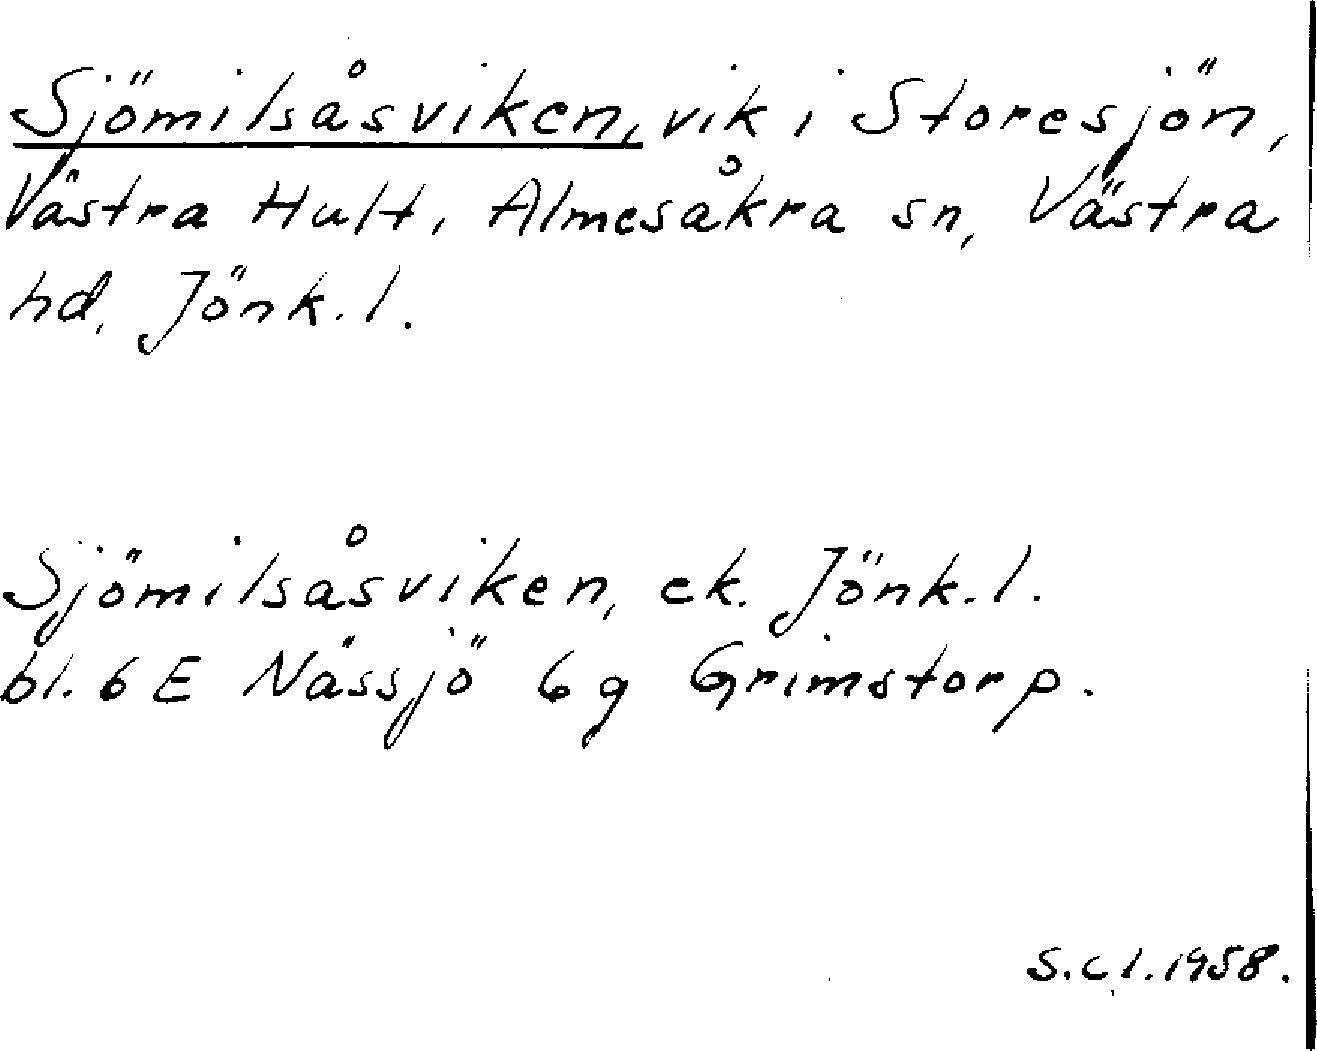 Sjömilsåsviken, vik i Storesjön,
Västra Hult, Almesåkra sn, Västra
hd, Jönk. l.
Sjömilsåsviken, ek. Jönk. l.
bl. 6 E Nässjö 6 g Grimstorp.
S. C. l. 1958.